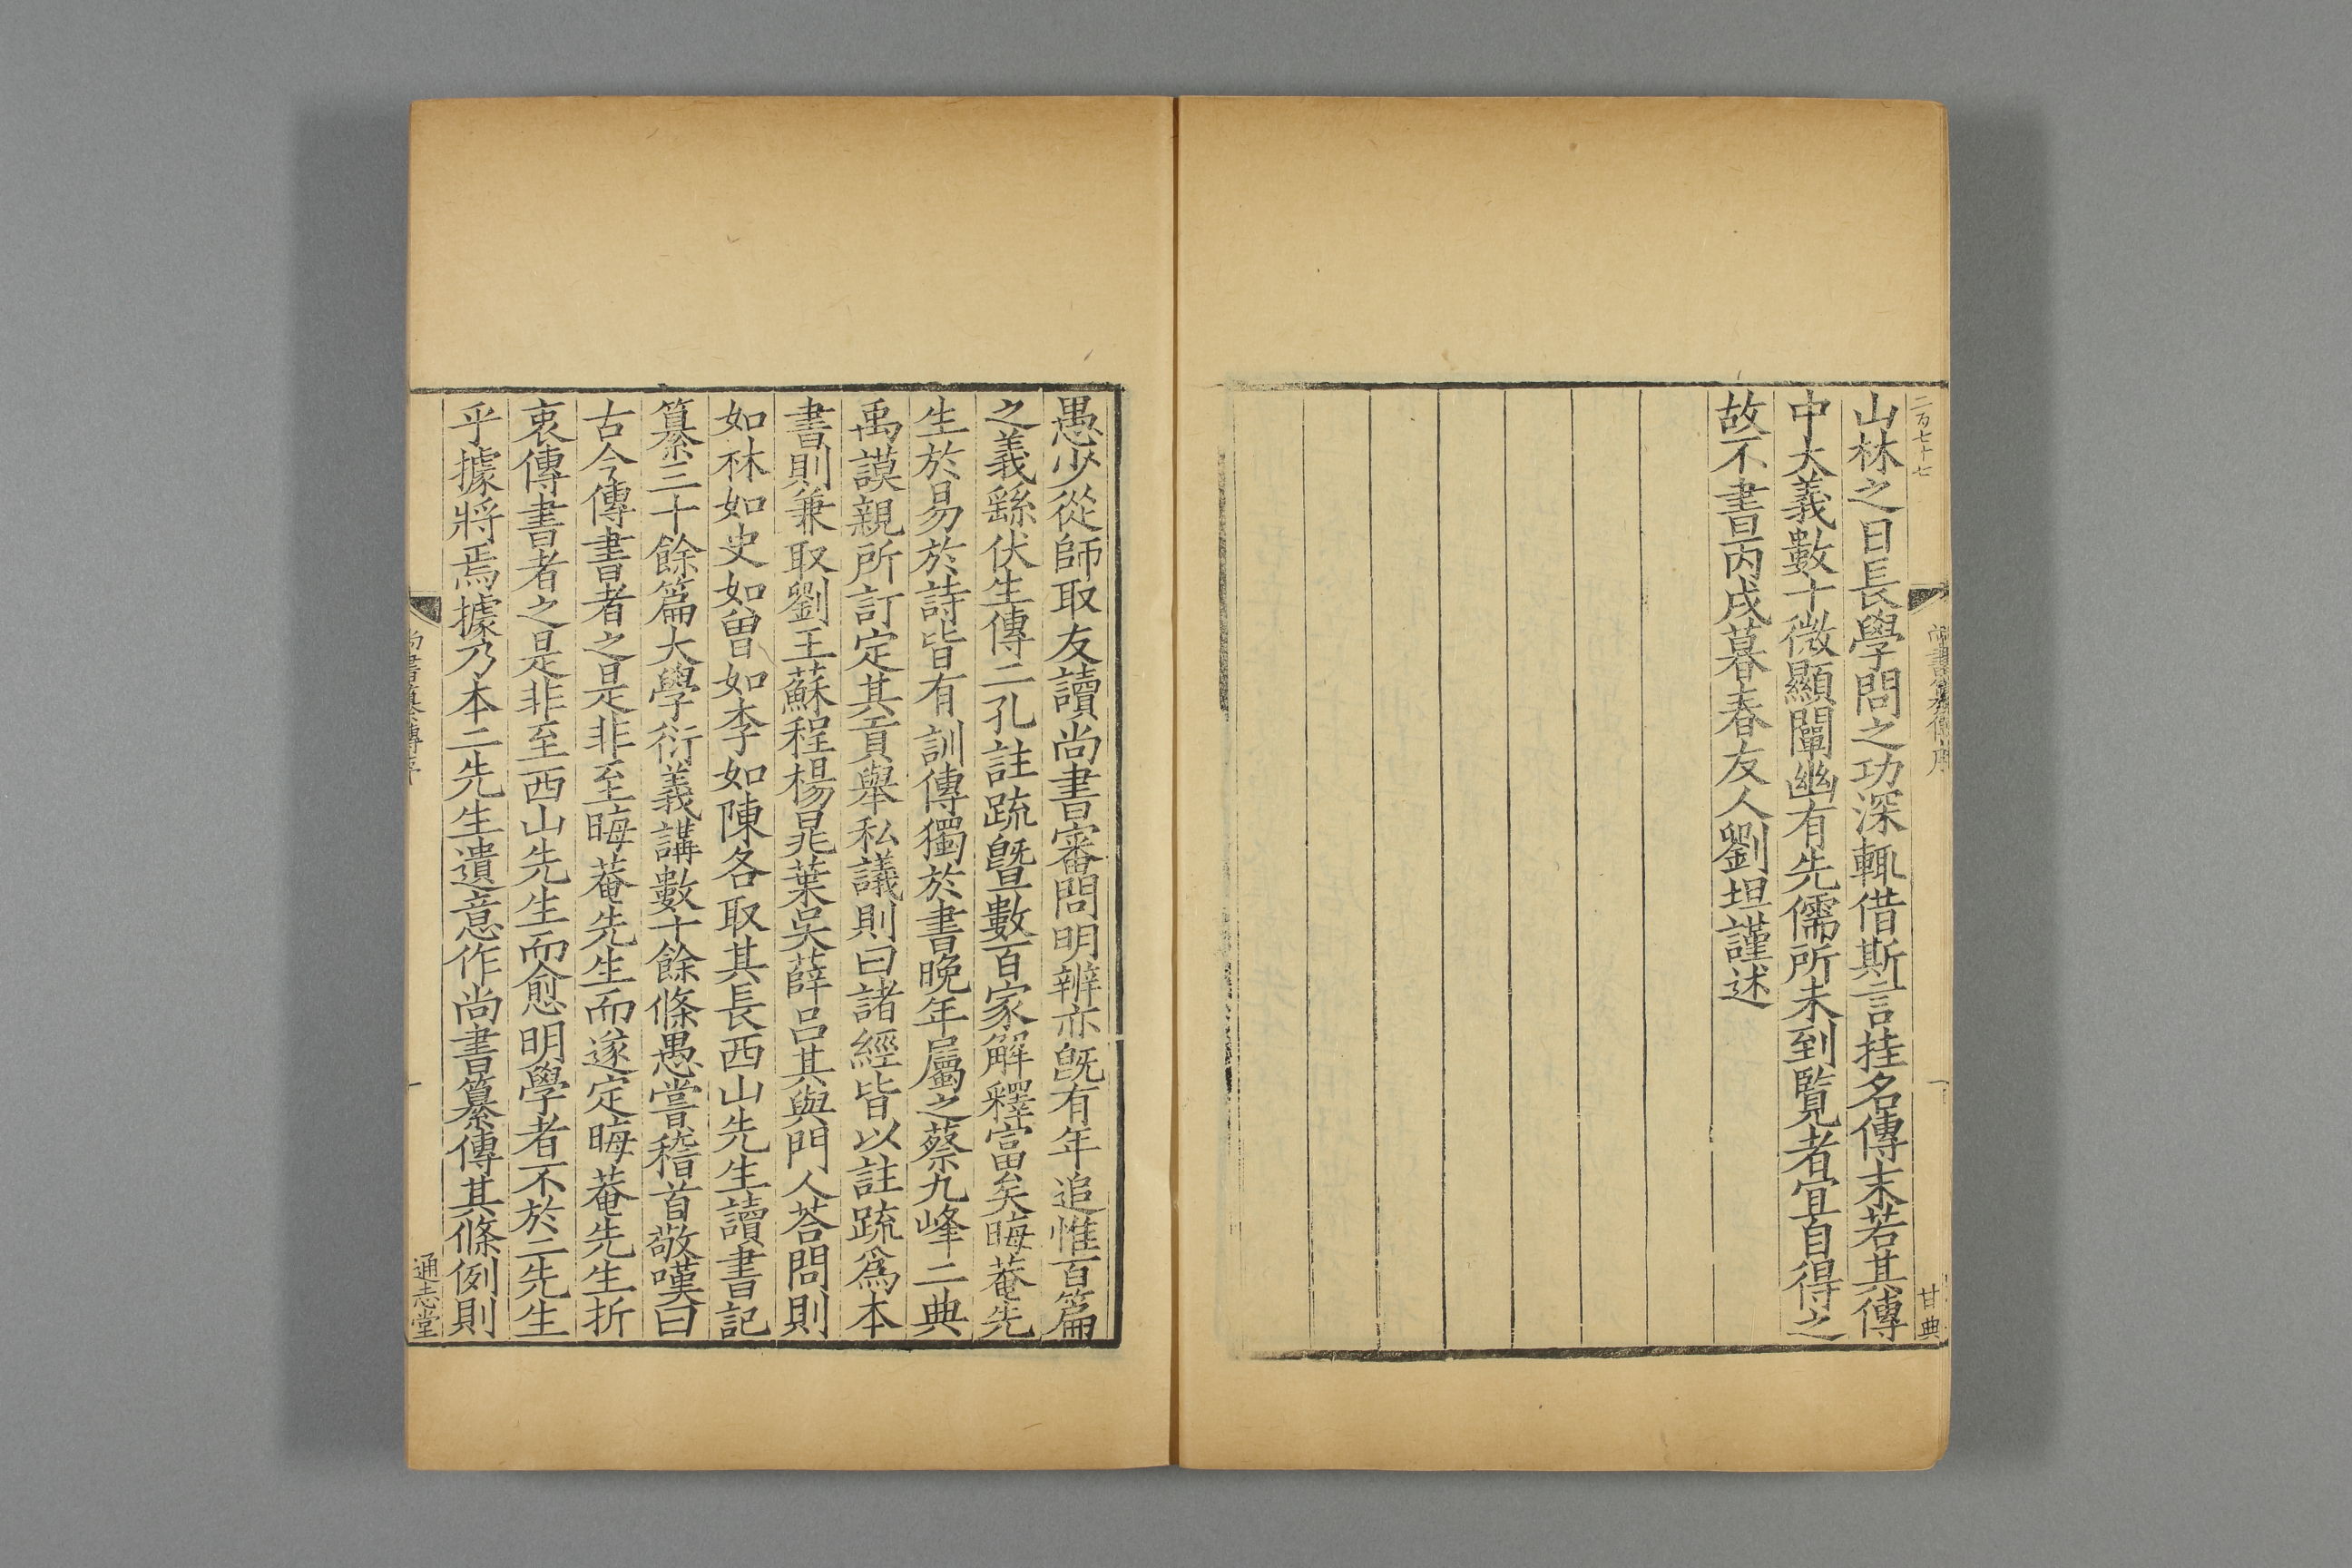 二百七十七
尚書纂傳序
甘典
山林之日長學問之功深輒借斯言挂名傳末若其傳
中大義數十微顯闡幽有先儒所未到覽者宜自得之
故不書旹丙戌暮春友人劉坦謹述
愚少從師取友讀尚書審問明辨亦旣有年追惟百篇
之義繇伏生傳二孔註疏曁數百家解釋富矣晦菴先
生於易於詩皆有訓傳獨於書晚年屬之蔡九峰二典
禹謨親所訂定其貢舉私議則曰諸經皆以註疏爲本
書則兼取劉王蘇程楊晁葉吳薛呂其與門人荅問則
如林如史如曾如李如陳各取其長西山先生讀書記
纂三十餘篇大學衍義講數十餘條愚嘗稽首敬嘆曰
古今傳書者之是非至晦菴先生而遂定晦菴先生折
衷傳書者之是非至西山先生而愈明學者不於二先生
乎據將焉據乃本二先生遺意作尚書纂傳其條例則
尚書纂傳序
一
通志堂